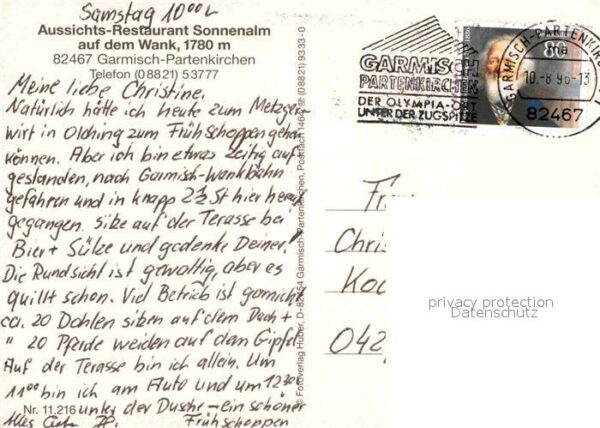 Samstag 10⁰⁰
Aussichts-Restaurant Sonnenalm
auf dem Wank, 1780 m
82467 Garmisch-Partenkirchen
Telefon (08821) 53777
Meine liebe Christine.
Natürlich hätte ich heute zum Metzger
wirt in Olching zum Frühschoppen gehn
können. Aber ich bin etwas zeitig auf
gestanden, nach Garmisch-Wankbahn
gefahren und in knapp 2½ St hier herauf
gegangen. sitze auf der Terasse bei
Bier + Sülze und gedenke Deiner!
Die Rundsicht ist gewaltig, aber es
quillt schon. Viel Betrieb ist garnicht
ca. 20 Dohlen sitzen auf dem Dach +
" 20 Pferde weiden auf dem Gipfel
Auf der Terasse bin ich allein. Um
11⁰⁰ bin ich am Auto und um 12³⁰
unter der Dusche – ein schöner
Frühschoppen
Alles Gute
Nr. 11.216
© Fotoverlag Huber, D-82454 Garmisch-Partenkirchen, Postfach 1464, ☎ (08821) 9333-0
GARMISCH
PARTENKIRCHEN
DER OLYMPIA-ORT
UNTER DER ZUGSPITZE
80
GARMISCH-PARTENKIRCHEN
10.-8.96-13
82467
Fr
Chri
Ko
042
privacy protection
Datenschutz